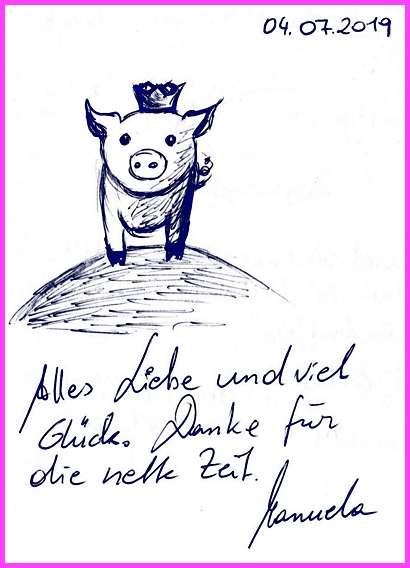 04.07.2019
Alles Liebe und viel
Glück. Danke für
die nette Zeit.
Manuela